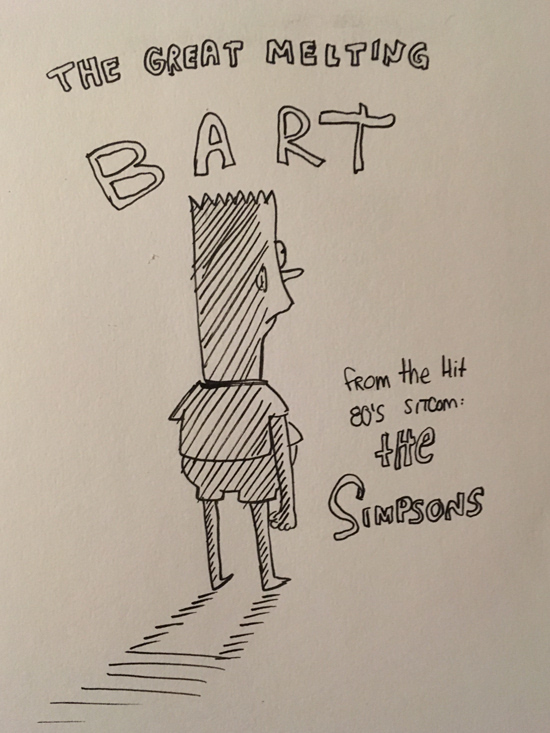 THE GREAT MELTING
BART
from the Hit
80's SITCOM:
tHe
SIMPSONS